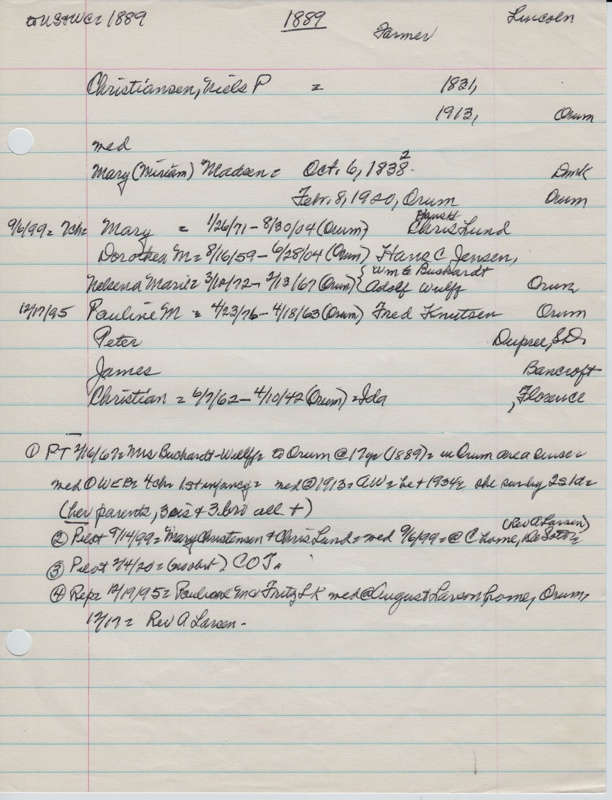 to US+WC= 1889 1889 Farmer Lincoln
Christiansen, Niels P = 1831,
1913, Orum
med
Mary (Miriam) Madsen = Oct. 6, 1838 2 Dmk
Febr. 8, 1920, Orum Orum
9/6/99= 7ch= Mary = 1/26/71 - 8/30/04 (Orum) Chris Lund
Dorothea M = 8/16/59 - 6/28/04 (Orum) Hans C Jensen,
Nelsena Marie= 3/10/72 - 2/13/67 (Orum) { Wm E Bushardt Adolf Wulff Orum
12/17/95 Pauline M = 4/23/76 - 4/18/63 (Orum) Fred Knutsen Orum
Peter Dupree, S.D.
James Bancroft
Christian = 6/7/62 - 4/10/42 (Orum) = Ida , Florence
① PT 2/16/67= Mrs Buchardt-Wulff= to Orum @ 17 yr (1889)= in Orum area since=
med @ WEB= 4 chr 1st infancy= med @ 1913= AW= he + 1934= she survby 2s1d=
(her parents, 3 sis + 3 bro all +)
② Pilot 9/14/99= Mary Christensen + Chris Lund= med 9/6/99= @ C home, DeSoto= (Rev A Larsen)
③ Pilot 2/4/20= (no obit) COT.
④ Rep= 12/19/95= Pauline M + Fritz L K med @ August Larson home, Orum,
12/17= Rev A Larsen -